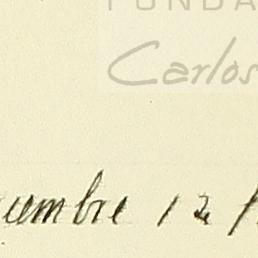 FUNDA
Carlos
cumbre 12